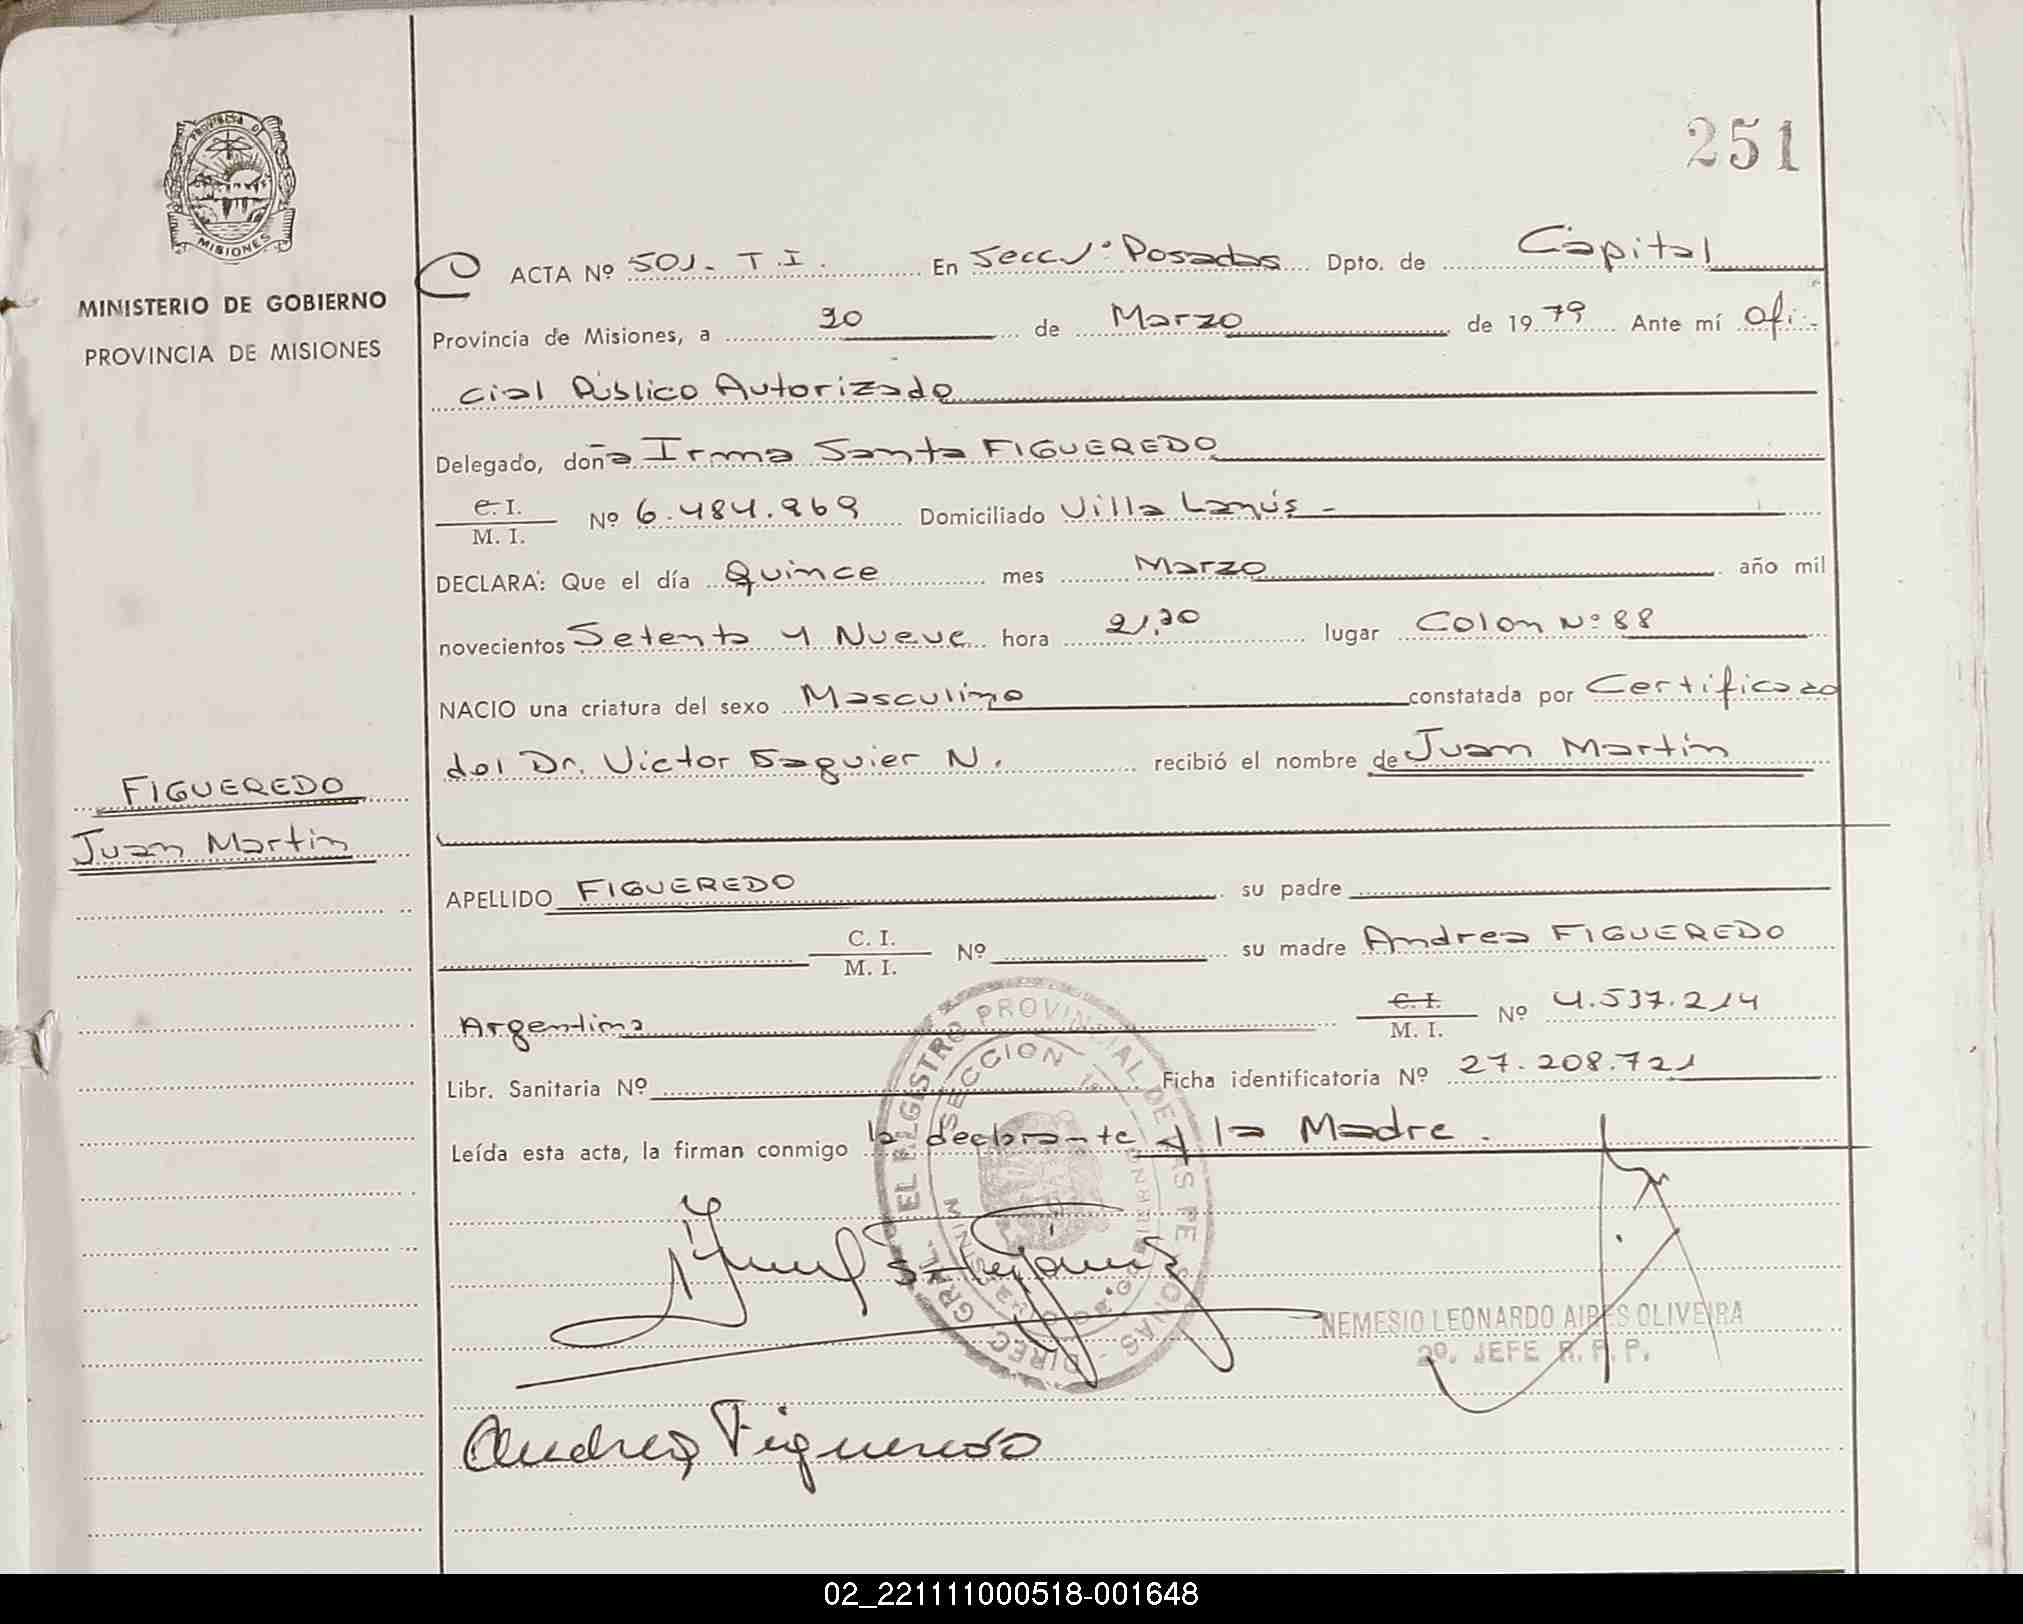 251
PROVINCIA DE
MISIONES
MINISTERIO DE GOBIERNO
PROVINCIA DE MISIONES
ACTA Nº 501. T.I. En Secc 1ª Posadas Dpto. de Capital
Provincia de Misiones, a 20 de Marzo de 1979 Ante mí Ofi-
cial Público Autorizado
Delegado, doña Irma Santa FIGUEREDO
C. I.
M. I.
Nº 6.484.969 Domiciliado Villa Lanús -
DECLARA: Que el día Quince mes Marzo año mil
novecientos Setenta y Nueve hora 21,30 lugar Colon Nº 88
NACIO una criatura del sexo Masculino constatada por Certificado
del Dr. Victor Saguier N. recibió el nombre de Juan Martín
FIGUEREDO
Juan Martin
APELLIDO FIGUEREDO su padre
C. I.
M. I.
Nº su madre Andrea FIGUEREDO
Argentina
C. I.
M. I.
Nº 4.537.214
Libr. Sanitaria Nº Ficha identificatoria Nº 27.208.721
Leída esta acta, la firman conmigo la declarante y la Madre.
DIREC. GRAL. EL REGISTRO PROVINCIAL DE LAS PERSONAS
SECCION 1ª
MINISTERIO DE GOBIERNO
NEMESIO LEONARDO AIRES OLIVEIRA
2º. JEFE R. P. P.
Andrea Figueredo
02_221111000518-001648